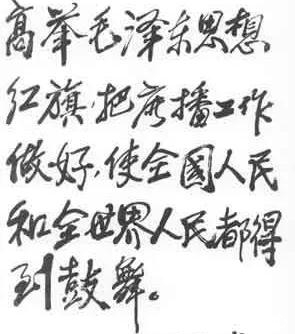 高举毛泽东思想
红旗,把广播工作
做好,使全國人民
和全世界人民都得
到鼓舞。